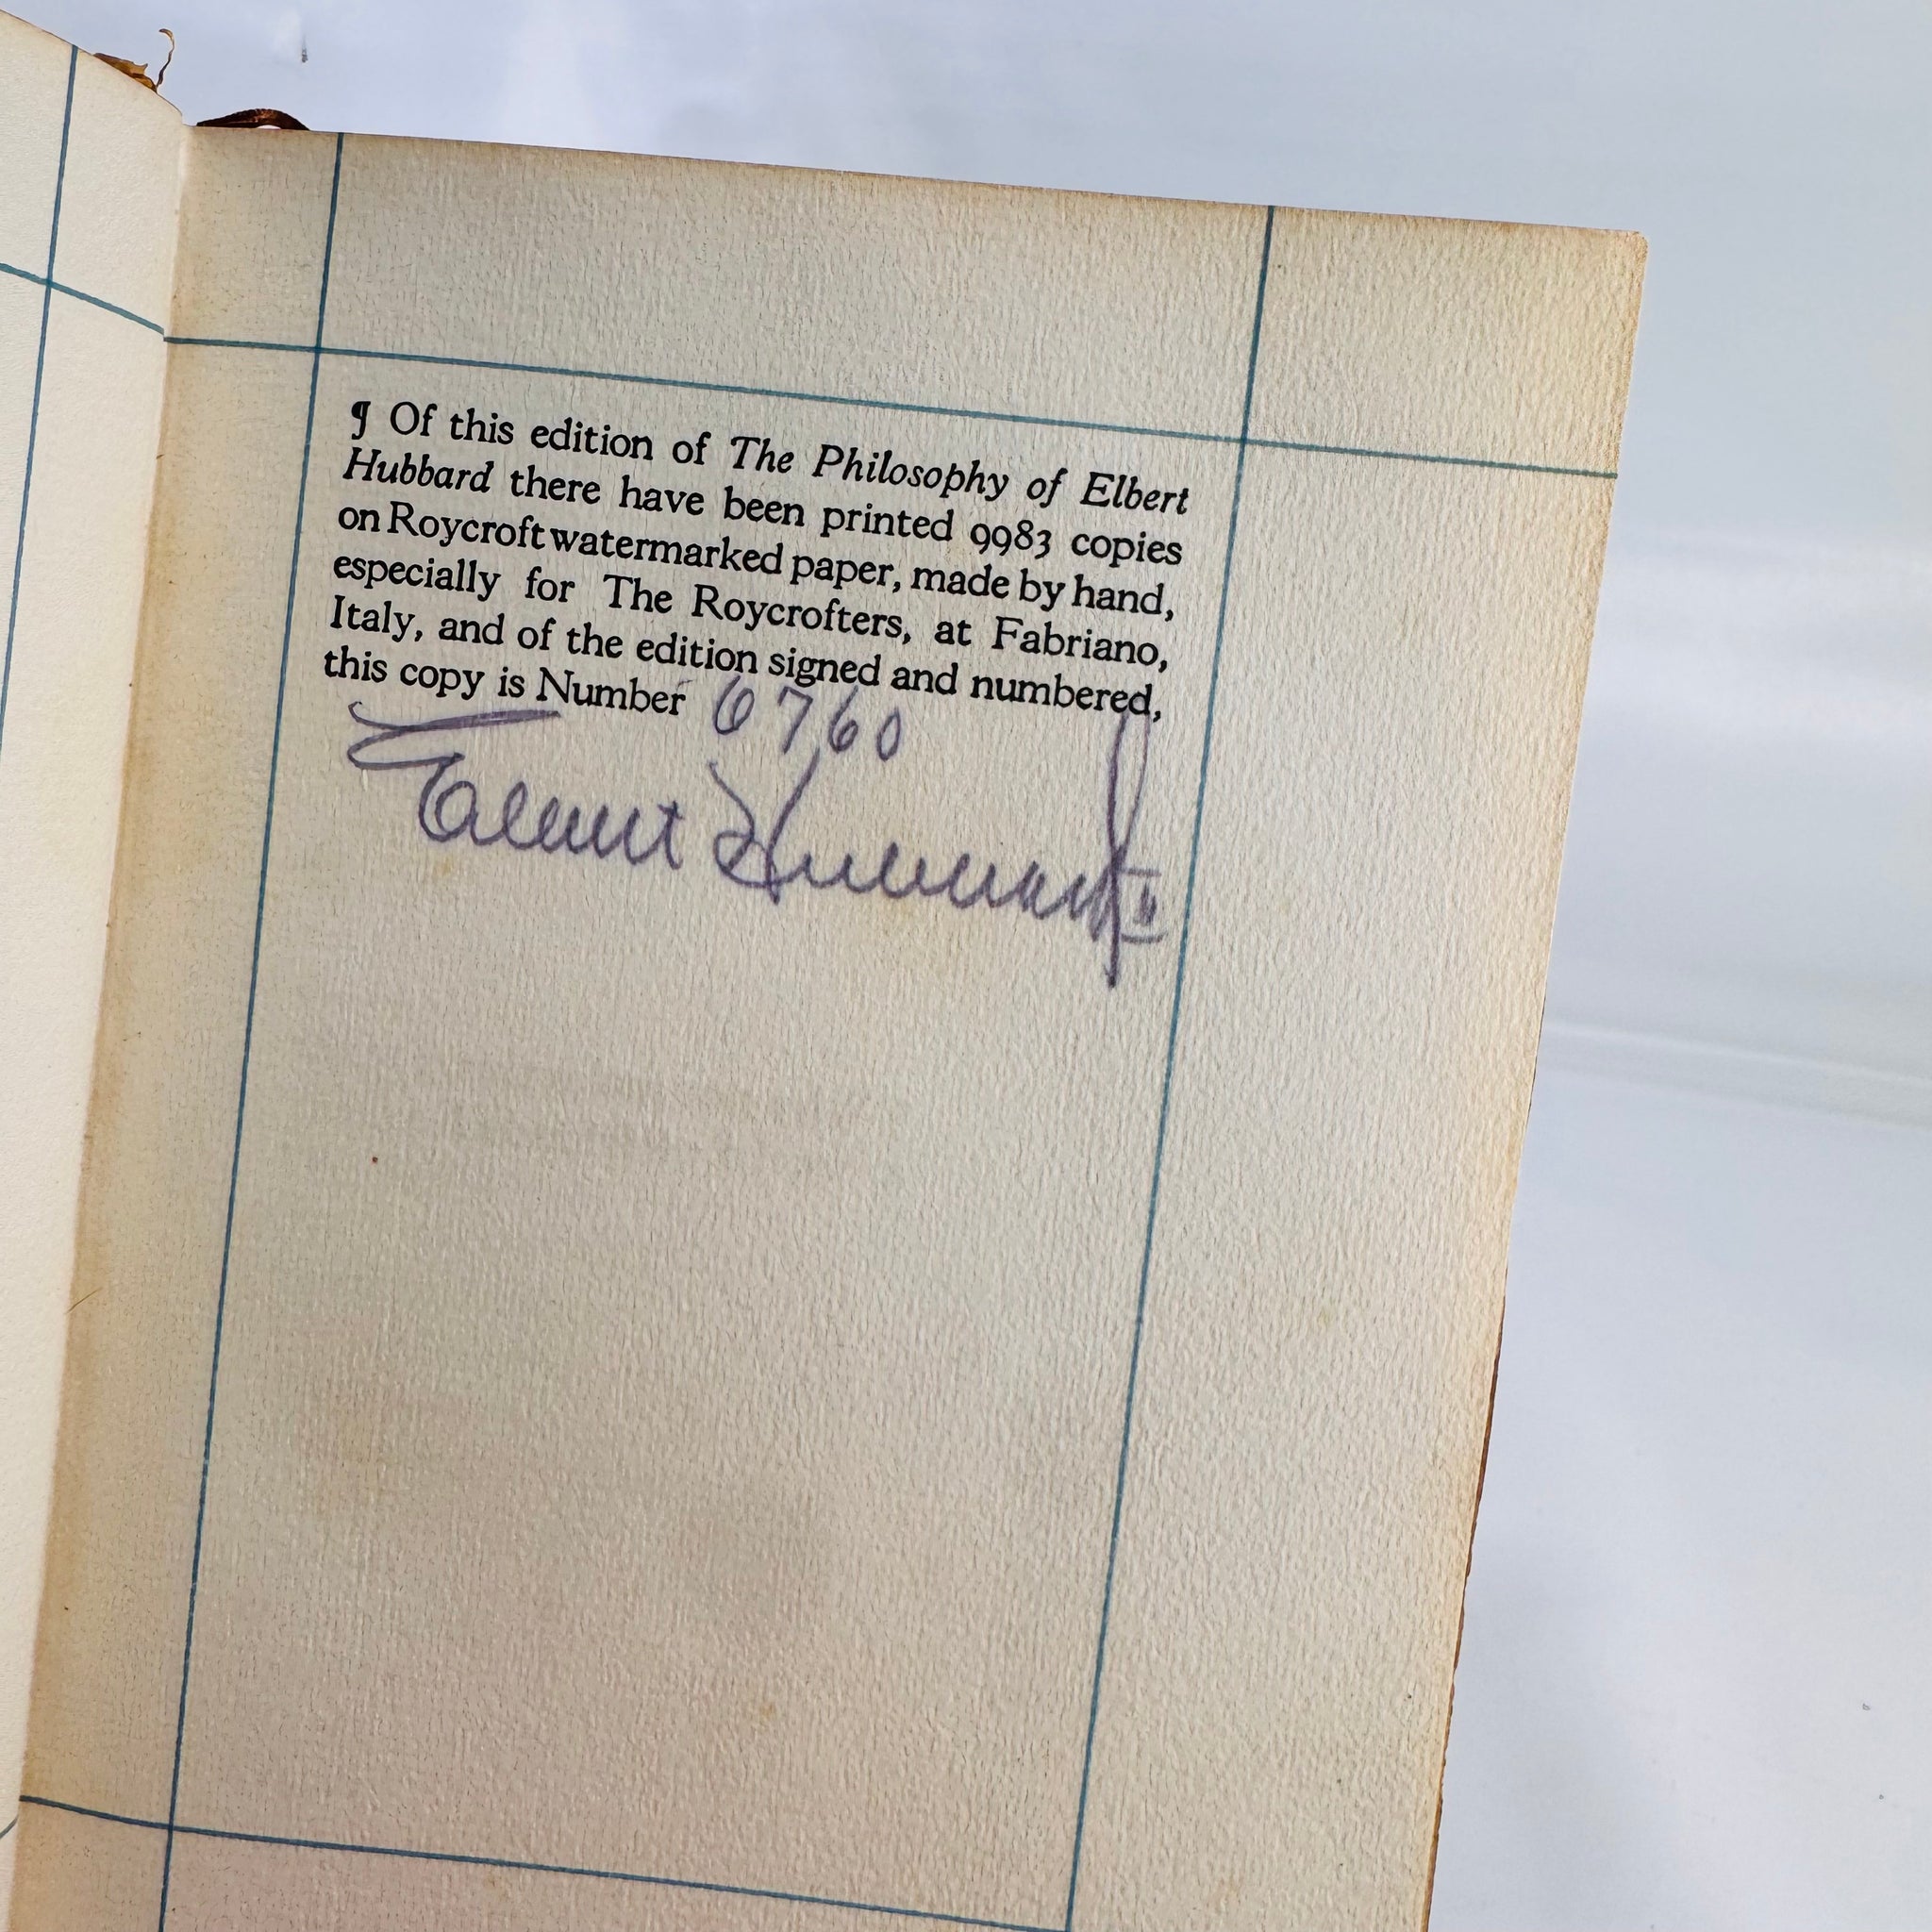 ¶ Of this edition of The Philosophy of Elbert
Hubbard there have been printed 9983 copies
on Roycroft watermarked paper, made by hand,
especially for The Roycrofters, at Fabriano,
Italy, and of the edition signed and numbered,
this copy is Number 6760
Elbert Hubbard II